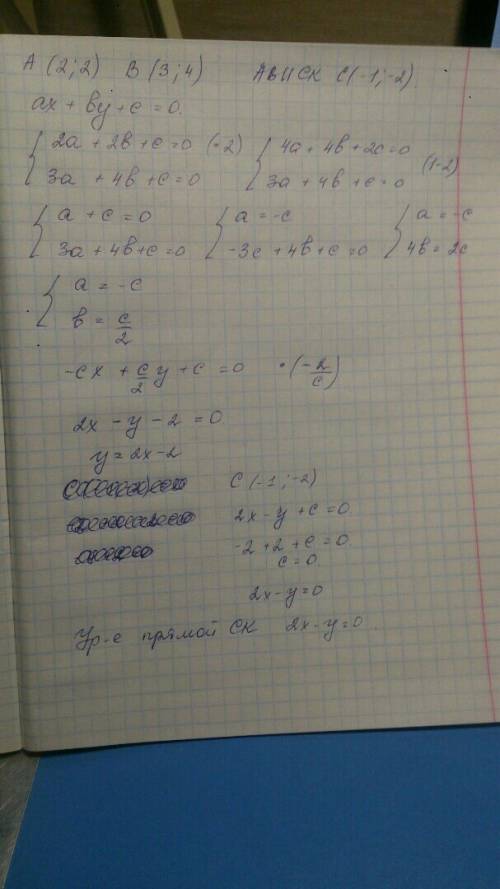 A (2; 2) B (3; 4) AB || CK C(-1; -2).
ax + вy + c = 0.
{ 2a + 2в + c = 0 (·2) { 4a + 4в + 2c = 0
{ 3a + 4в + c = 0 { 3a + 4в + c = 0 (1-2)
{ a + c = 0 { a = -c { a = -c
{ 3a + 4в + c = 0 { -3c + 4в + c = 0 { 4в = 2c
{ a = -c
{ в = c/2
-cx + c/2 y + c = 0 · (-2/c)
2x - y - 2 = 0
y = 2x - 2
C (-1; -2)
2x - y + c = 0
-2 + 2 + c = 0
c = 0.
2x - y = 0
Ур-е прямой CK 2x - y = 0